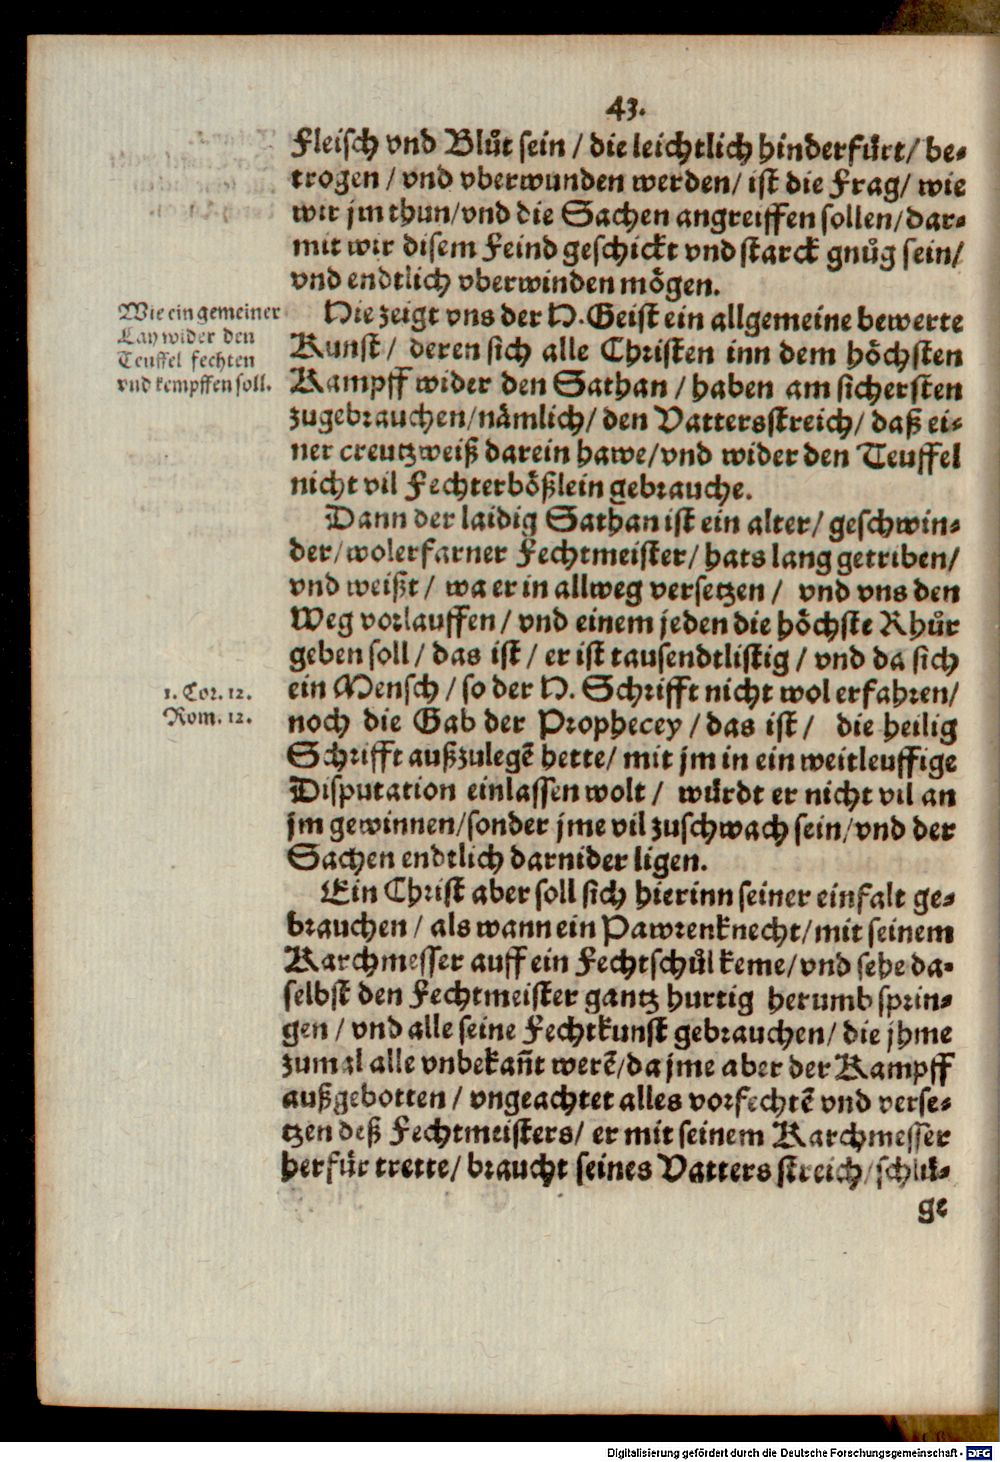 43.
Fleisch vnd Blůt sein / die leichtlich hinderfürt / be-
trogen / vnd vberwunden werden / ist die Frag / wie
wir jm thun / vnd die Sachen angreiffen sollen / dar-
mit wir disem Feind geschickt vnd starck gnůg sein /
vnd endtlich vberwinden mögen.
Wie ein gemeiner
Lay wider den
Teuffel fechten
vnd kempffen soll.
Hie zeigt vns der H. Geist ein allgemeine bewerte
Kunst / deren sich alle Christen inn dem höchsten
Kampff wider den Sathan / haben am sichersten
zugebrauchen / nämlich / den Vattersstreich / daß ei-
ner creutzweiß darein hawe / vnd wider den Teuffel
nicht vil Fechterbößlein gebrauche.
Dann der laidig Sathan ist ein alter / geschwin-
der / wolerfarner Fechtmeister / hats lang getriben /
vnd weißt / wa er in allweg versetzen / vnd vns den
Weg vorlauffen / vnd einem jeden die höchste Rhůr
geben soll / das ist / er ist tausendtlistig / vnd da sich
1. Cor. 12.
Rom. 12.
ein Mensch / so der H. Schrifft nicht wol erfahren /
noch die Gab der Prophecey / das ist / die heilig
Schrifft außzulegẽ hette / mit jm in ein weitleuffige
Disputation einlassen wolt / würdt er nicht vil an
jm gewinnen / sonder jme vil zuschwach sein / vnd der
Sachen endtlich darnider ligen.
Ein Christ aber soll sich hierinn seiner einfalt ge-
brauchen / als wann ein Pawrenknecht / mit seinem
Karchmesser auff ein Fechtschůl keme / vnd sehe da-
selbst den Fechtmeister gantz hurtig herumb sprin-
gen / vnd alle seine Fechtkunst gebrauchen / die jhme
zumal alle vnbekañt werẽ / da jme aber der Kampff
außgebotten / vngeachtet alles vorfechtẽ vnd verse-
tzen deß Fechtmeisters / er mit seinem Karchmesser
herfür trette / braucht seines Vatters streich / schlü-
ge
Digitalisierung gefördert durch die Deutsche Forschungsgemeinschaft - DFG